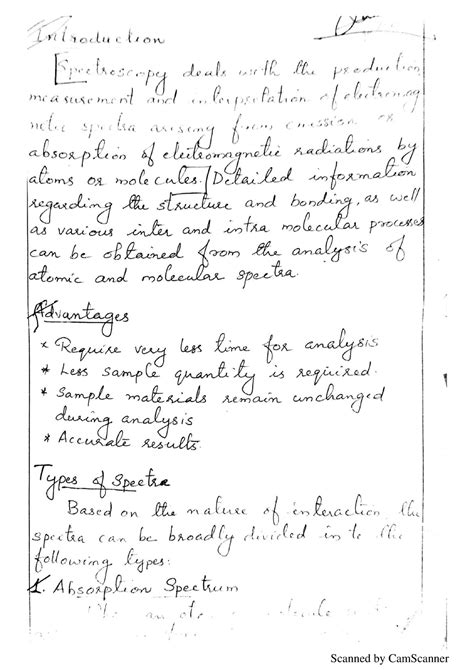 Introduction
Spectroscopy deals with the production
measurement and interpretation of electromag
netic spectra arising from emission or
absorption of electromagnetic radiations by
atoms or molecules. Detailed information
regarding the structure and bonding, as well
as various inter and intra molecular processes
can be obtained from the analysis of
atomic and molecular spectra.
Advantages
* Require very less time for analysis
* Less sample quantity is required.
* Sample materials remain unchanged
during analysis
* Accurate results.
Types of Spectra
Based on the nature of interaction the
spectra can be broadly divided in to the
following types:
1. Absorption Spectrum
Scanned by CamScanner